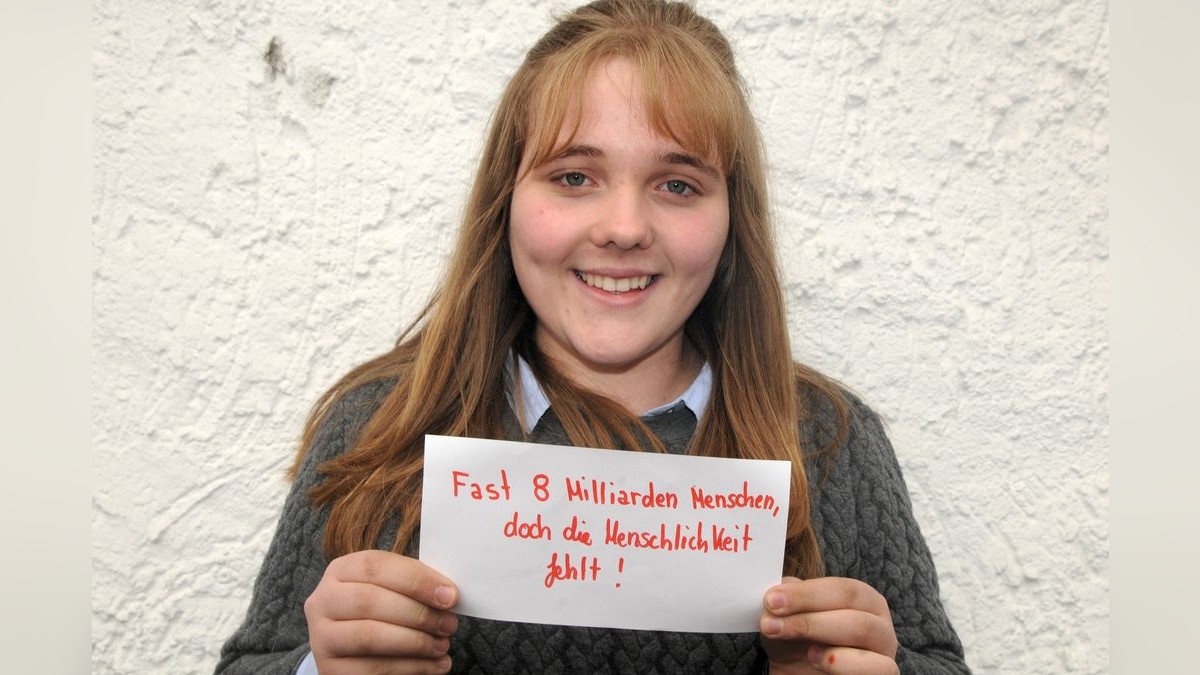 Fast 8 Milliarden Menschen,
doch die Menschlichkeit
fehlt!